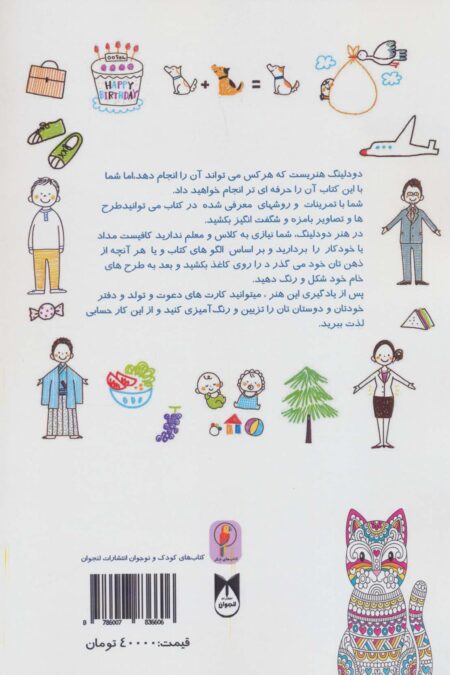 HAPPY
BIRTHDAY
+ =
دودلینگ هنریست که هرکس می تواند آن را انجام دهد،اما شما
با این کتاب آن را حرفه ای تر انجام خواهید داد.
شما با تمرینات و روشهای معرفی شده در کتاب می توانیدطرح
ها و تصاویر بامزه و شگفت انگیز بکشید.
در هنر دودلینگ، شما نیازی به کلاس و معلم ندارید کافیست مداد
یا خودکار را بردارید و بر اساس الگو های کتاب و یا هر آنچه از
ذهن تان خود می گذر د را روی کاغذ بکشید و بعد به طرح های
خام خود شکل و رنگ دهید.
پس از یادگیری این هنر ، میتوانید کارت های دعوت و تولد و دفتر
خودتان و دوستان تان را تزیین و رنگ‌آمیزی کنید و از این کار حسابی
لذت ببرید.
کتاب‌های کودک و نوجوان انتشارات لنجوان
لنجوان
9 786007 836606
قیمت:۴۰۰۰۰ تومان